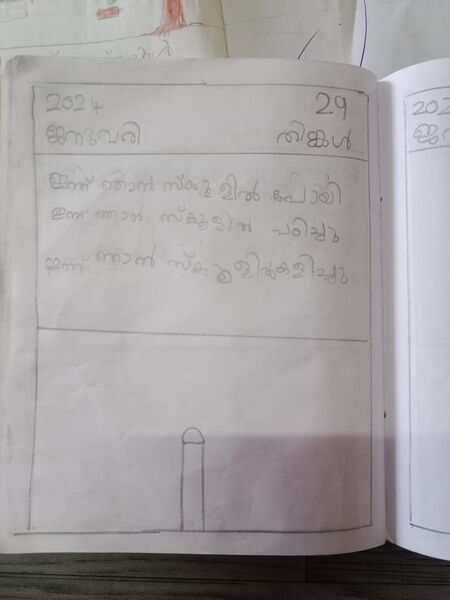 2024 29
ജനുവരി തിങ്കൾ
ഇന്ന് ഞാൻ സ്കൂളിൽ പോയി
ഇന്ന് ഞാൻ സ്കൂളിൽ പഠിച്ചു
ഇന്ന് ഞാൻ സ്കൂളിൽ കളിച്ചു